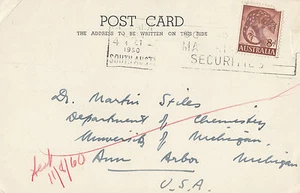 POST CARD
THE ADDRESS TO BE WRITTEN ON THIS SIDE
1960
SOUTH AUST
MA
SECURITIES
8d
AUSTRALIA
Dr. Martin Stiles
Department of Chemistry
University of Michigan,
Ann Arbor Michigan
U.S.A.
Sent
11/2/60